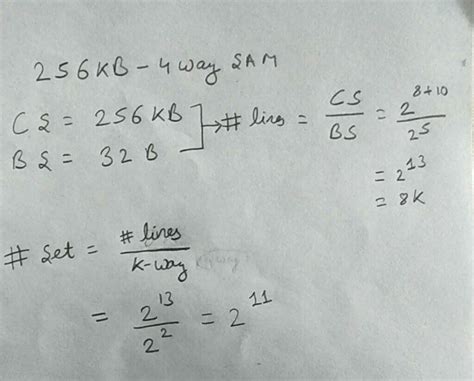 256KB - 4 way SAM
CS = 256 KB
BS = 32 B
# lines = CS / BS = 2^8+10 / 2^5
= 2^13
= 8K
# Set = # lines / K-way
= 2^13 / 2^2 = 2^11